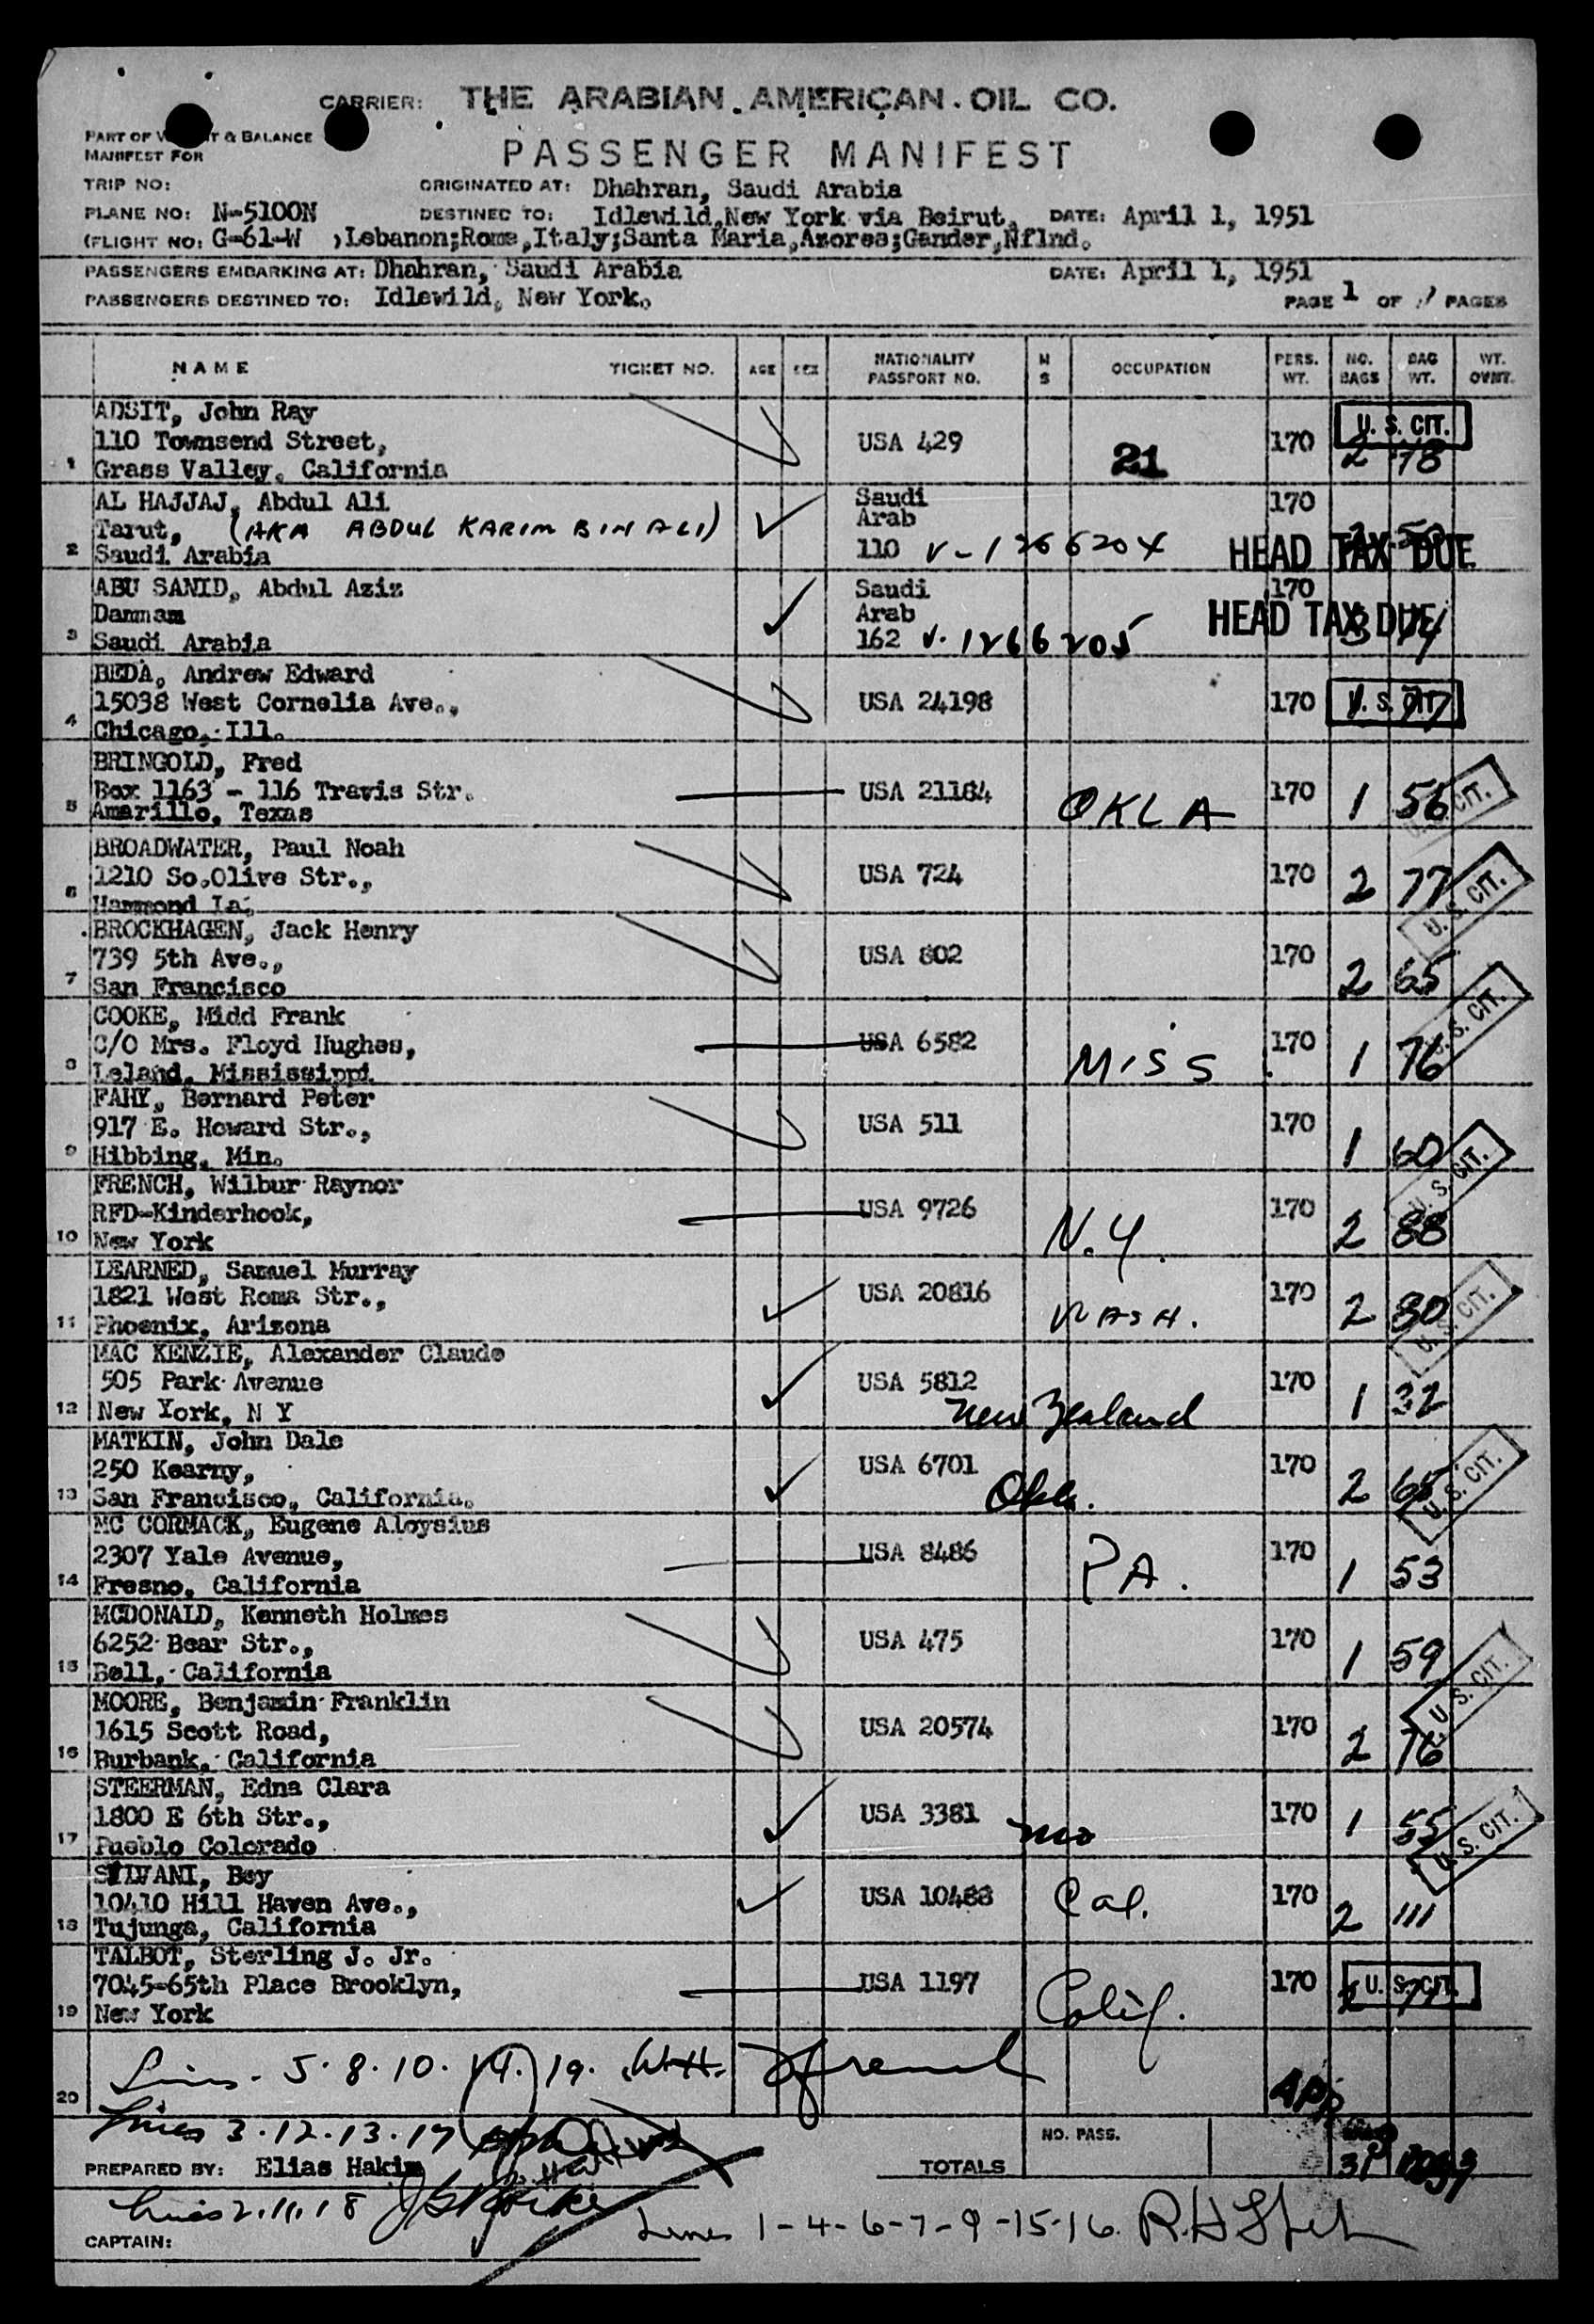 CARRIER: THE ARABIAN AMERICAN OIL CO.
PART OF & BALANCE
MANIFEST FOR
PASSENGER MANIFEST
TRIP NO: ORIGINATED AT: Dhahran, Saudi Arabia
PLANE NO: N-5100N DESTINED TO: Idlewild,New York via Beirut, DATE: April 1, 1951
(FLIGHT NO: G-61-W ),Lebanon;Rome,Italy;Santa Maria,Azores;Gander,Nflnd.
PASSENGERS EMBARKING AT: Dhahran, Saudi Arabia DATE: April 1, 1951
PASSENGERS DESTINED TO: Idlewild, New York. PAGE 1 OF PAGES
NAME TICKET NO. AGE SEX NATIONALITY PASSPORT NO. M S OCCUPATION PERS. WT. NO. BAGS BAG WT. WT. OVWT.
ADSIT, John Ray
110 Townsend Street, USA 429 21 170 2 78 U. S. CIT.
1 Grass Valley, California
AL HAJJAJ, Abdul Ali Saudi 170
Tarut, (AKA ABDUL KARIM BIN ALI) Arab
2 Saudi Arabia 110 V-1266204 HEAD TAX DUE
ABU SANID, Abdul Aziz Saudi 170
Dammam Arab HEAD TAX DUE
3 Saudi Arabia 162 V-1266205
BEDA, Andrew Edward
15038 West Cornelia Ave., USA 24198 170 U. S. CIT.
4 Chicago, Ill.
BRINGOLD, Fred
Box 1163 - 116 Travis Str. USA 21184 OKLA 170 1 56 U. S. CIT.
5 Amarillo, Texas
BROADWATER, Paul Noah
1210 So.Olive Str., USA 724 170 2 77 U. S. CIT.
6 Hammond La.
BROCKHAGEN, Jack Henry
739 5th Ave., USA 802 170 2 65
7 San Francisco
COOKE, Midd Frank
C/O Mrs. Floyd Hughes, USA 6582 MISS 170 1 76 U. S. CIT.
8 Leland, Mississippi
FAHY, Bernard Peter
917 E. Howard Str., USA 511 170 1 60
9 Hibbing, Min.
FRENCH, Wilbur Raynor
RFD-Kinderhook, USA 9726 N.Y. 170 2 88 U. S. CIT.
10 New York
LEARNED, Samuel Murray
1821 West Roma Str., USA 20816 WASH. 170 2 80 U. S. CIT.
11 Phoenix, Arizona
MAC KENZIE, Alexander Claude
505 Park Avenue USA 5812 New Zealand 170 1 32
12 New York, N Y
MATKIN, John Dale
250 Kearny, USA 6701 Okla. 170 2 65 U. S. CIT.
13 San Francisco, California.
MC CORMACK, Eugene Aloysius
2307 Yale Avenue, USA 8486 PA. 170 1 53
14 Fresno, California
MCDONALD, Kenneth Holmes
6252 Bear Str., USA 475 170 1 59
15 Bell, California
MOORE, Benjamin Franklin
1615 Scott Road, USA 20574 170 2 76 U. S. CIT.
16 Burbank, California
STEERMAN, Edna Clara
1800 E 6th Str., USA 3381 Mo 170 1 55 U. S. CIT.
17 Pueblo Colorado
SILVANI, Bey
10410 Hill Haven Ave., USA 10488 Cal. 170 2 111
18 Tujunga, California
TALBOT, Sterling J. Jr.
7045-65th Place Brooklyn, USA 1197 Calif. 170 U. S. CIT.
19 New York
20 Lines - 5.8.10.14.19.
Lines 3.12.13.17
NO. PASS.
PREPARED BY: Elias Hakim TOTALS 31
Lines 2.11.18
Lines 1-4-6-7-9-15-16.
CAPTAIN: